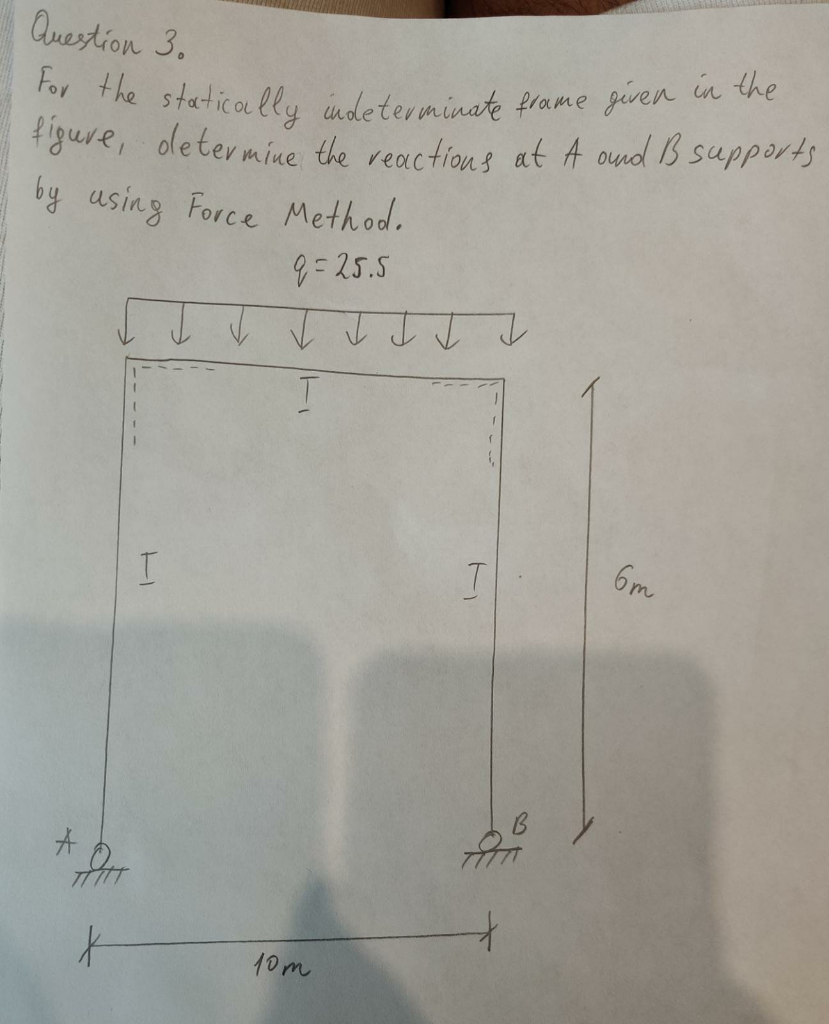 Question 3.
For the statically indeterminate frame given in the
figure, determine the reactions at A and B supports
by using Force Method.
q=25.5
I
I
I
6m
A
B
10m